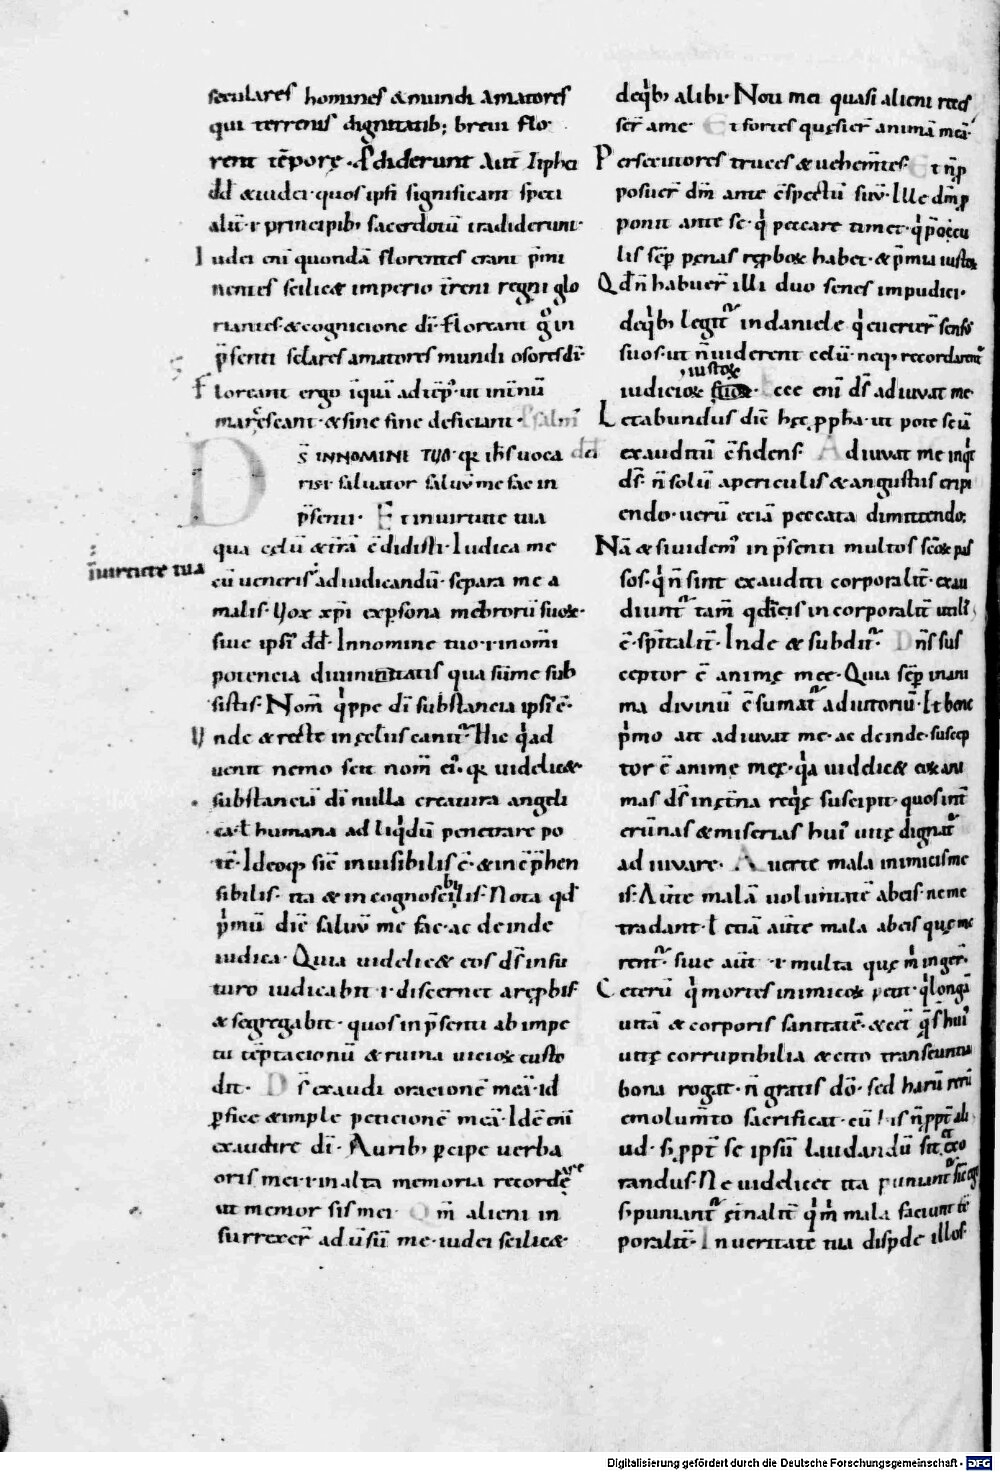 seculares homines & mundi amatores
qui terrenis dignitatib; breui flo
rent tēporę. Pdiderunt Aut̄ Ziphei
dd̄ & iudei. quos ipsi significant speci
alit̄. i. principib; sacerdotū tradiderunt.
Iudei eni quondā florentes erant p̄mi
nentes scilic& imperio t̄reni regni glo
riantes. & cognicione dī. floreant in
p̄senti amatores mundi osores dī.
Floreant ergo iqui ad tēp'. ut in &nū
marcescant. & sine fine deficiant. Psalm̄
DS̄ IN NOMINI TUO. ihs uoca dd̄
rist saluator saluū me fac in
p̄senti. Et in uirtute tua
in uirtute tua
qua cęlū & t̄rā c̄didisti. Iudica me
cū ueneris ad iudicandū. separa me a
malis. Vox xp̄i ex psona mēbrorū suoꝝ.
siue ipsi dd̄. In nomine tuo. i. nom̄i
potencia diuinitatis qua sūme sub
sistis. Nom̄ qippe dī substancia ipsi ē.
Unde & recte in cęlis canit̄. Hic qi ad
uenit nemo scit nom̄ ei. uidelic&
substanciā dī nulla creatura angeli
ca. ł humana ad liqidū penetrare po
tē. Ideoq; sic inuisibilis ē. & inc̄p̄hen
sibilis. ita & incognoscibilis. Nota qd̄
p̄mū dic̄ saluū me fac. ac deinde
iudica. Quia uidelic& eos ds̄ in fu
turo iudicabit. i. discernet a ręp̄bis
& segregabit. quos in p̄senti ab impe
tu tēptacionū & ruina uicioꝝ custo
dit. Ds̄ exaudi oracionē meā. id
pfice & imple peticionē meā. Idē eni
exaudire dī. Aurib; pcipe uerba
oris mei. i. in alta memoria recordare
ut memor sis mei. Qm̄ alieni in
surrexer̄ aduersū me. iudei scilic&
deqib; alibi. Non mei quasi alieni reces
ser̄ a me. Et fortes quęsier̄ animā meā.
Persecutores truces & uehem̄tes. Et n̄ p
posuer̄ dm̄ ante c̄spectū suū. Ille dm̄ p
ponit ante se. qi peccare timet. qi p oc̄cu
lis sēp penas ręp̄boꝝ habet. & p̄mia iustoꝝ
Qd̄ n̄ habuer̄ illi duo senes impudici.
deqib; legit̄ in daniele qi euerter̄ sensū
suos. ut n̄ uiderent cęlū. neq; recordarent̄
iustoꝝ
iudicioꝝ suoꝝ. Ecce eni ds̄ adiuuat me
Letabundus dic̄ hęc ppha. ut pote se iā
exauditū c̄fidens. Adiuuat me inqit
ds̄. n̄ solū a periculis & angustiis eripi
endo. uerū eciā peccata dimittendo;
Nā & si uidem' in p̄senti multos sc̄oꝝ pas
sos. qi n̄ sint exauditi corporalit̄. exau
diunt̄ tam̄ in corporalit̄ utili
ē. sp̄italit̄. Inde & subdit̄. Dn̄s sus
ceptor ē animę meę. Quia sēp in ani
ma diuinū c̄sumat̄ adiutoriū. Et bene
p̄mo ait adiuuat me. ac deinde. suscep
tor ē animę meę. qia uidelic& eoꝝ ani
mas ds̄ in ęt̄na reqię suscipit. quos int̄
erūnas & miserias hui' uitę dignat̄
adiuuare. Auerte mala inimicis me
is. Au̅te malā uoluntatē ab eis. ne me
tradant. ł eciā au̅te mala ab eis quę me
rent̄. siue aut̄. i. multa quę m̄ inger̄.
Ceterū qi mortes inimicoꝝ petit. qi longā
uitā & corporis sanitatē. & cet̄ hui'
uitę corruptibilia & cito transeuntia
bona rogat. n̄ gratis dō. sed harū rerū
emolum̄to sacrificat. cū is n̄ ppt̄ ali
ud. s; ppt̄ se ipsū laudandū sit & exo
randus. Ne uidelicet ita puniant̄ sic ego
s; puniant̄ ęt̄nalit̄ qi m̄ mala faciunt tē
poralit̄. In ueritate tua dispde illos.
Digitalisierung gefördert durch die Deutsche Forschungsgemeinschaft - DFG